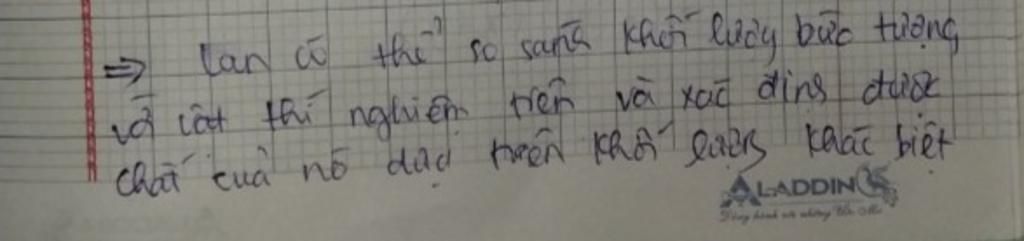 => Lan có thể so sánh khối lượng bức tượng
với cát thí nghiệm trên và xác định được
chất của nó dựa trên khối lượng khác biệt
ALADDIN